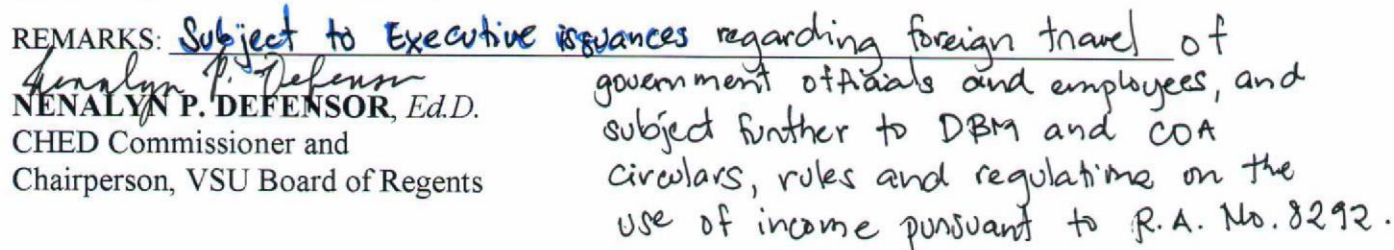 REMARKS: Subject to Executive issuances regarding foreign travel of
government officials and employees, and
subject further to DBM and COA
circulars, rules and regulations on the
use of income pursuant to R.A. No. 8292.
Nenalyn P. Defensor
NENALYN P. DEFENSOR, Ed.D.
CHED Commissioner and
Chairperson, VSU Board of Regents